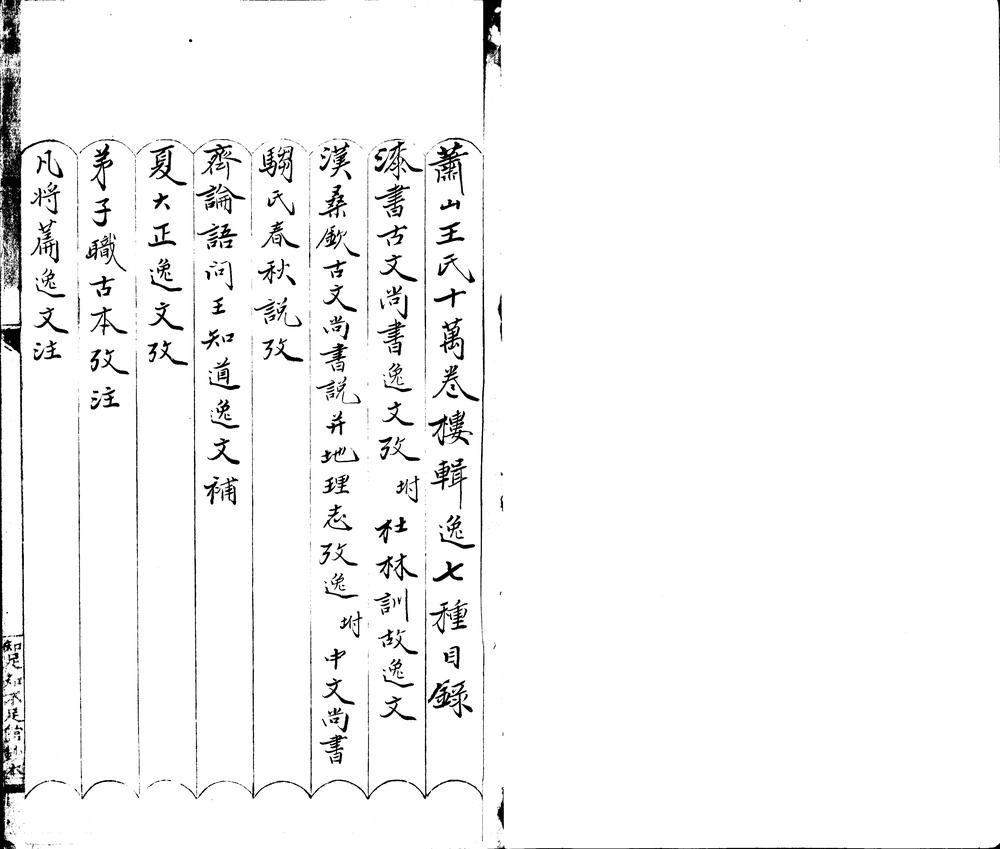 蕭山王氏十萬卷樓輯逸七種目錄
漆書古文尚書逸文攷 坿 杜林訓故逸文
漢桑欽古文尚書說并地理志攷逸 坿 中文尚書
騶氏春秋説攷
齊論語問王知道逸文補
夏大正逸文攷
弟子職古本攷注
凡將篇逸文注
知足知不足館鈔本